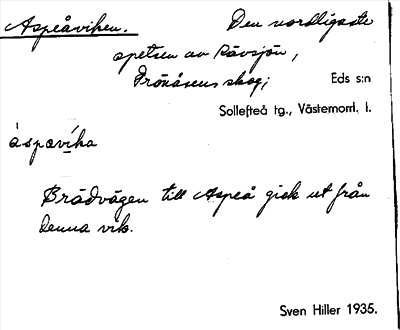 Aspeåviken. Den nordligaste
spetsen av Rävsjön,
Prönåsens skog; Eds s:n
Sollefteå tg., Västernorrl. l.
áspavíka
Brådvägen till Aspeå gick ut från
denna vik.
Sven Hiller 1935.